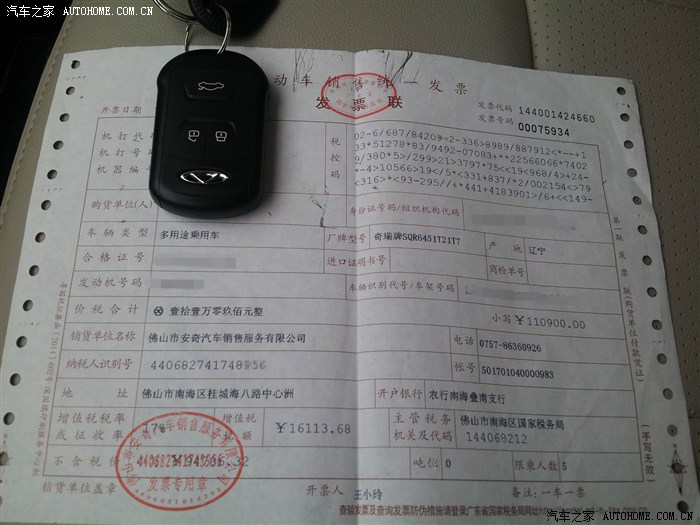 汽车之家 AUTOHOME.COM.CN
动车销售统一发票
发票联
开票日期
发票代码 144001424660
发票号码 00075934
机打代
机打号
机器编
税控码
购货单位(人)
身份证号码/组织机构代码
车辆类型 多用途乘用车 厂牌型号 奇瑞牌SQR6451T21T7 产地 辽宁
合格证号 进口证明书号 商检单号
发动机号码 车辆识别代号/车架号码
价税合计 ⊗ 壹拾壹万零玖佰元整 小写 ¥110900.00
销货单位名称 佛山市安奇汽车销售服务有限公司 电话 0757-86360926
纳税人识别号 440682741748936 帐号 501701040000983
地址 佛山市南海区桂城海八路中心洲 开户银行 农行南海叠南支行
增值税税率或征收率 17% 增值税额 ¥16113.68 主管税务机关及代码 佛山市南海区国家税务局 144068212
不含税价 吨位 0 限乘人数 5
发票专用章
销货单位盖章 开票人 王小玲 备注:一车一票
第一联 发票联(购货单位付款凭证)
(手写无效)
汽车之家 AUTOHOME.COM.CN